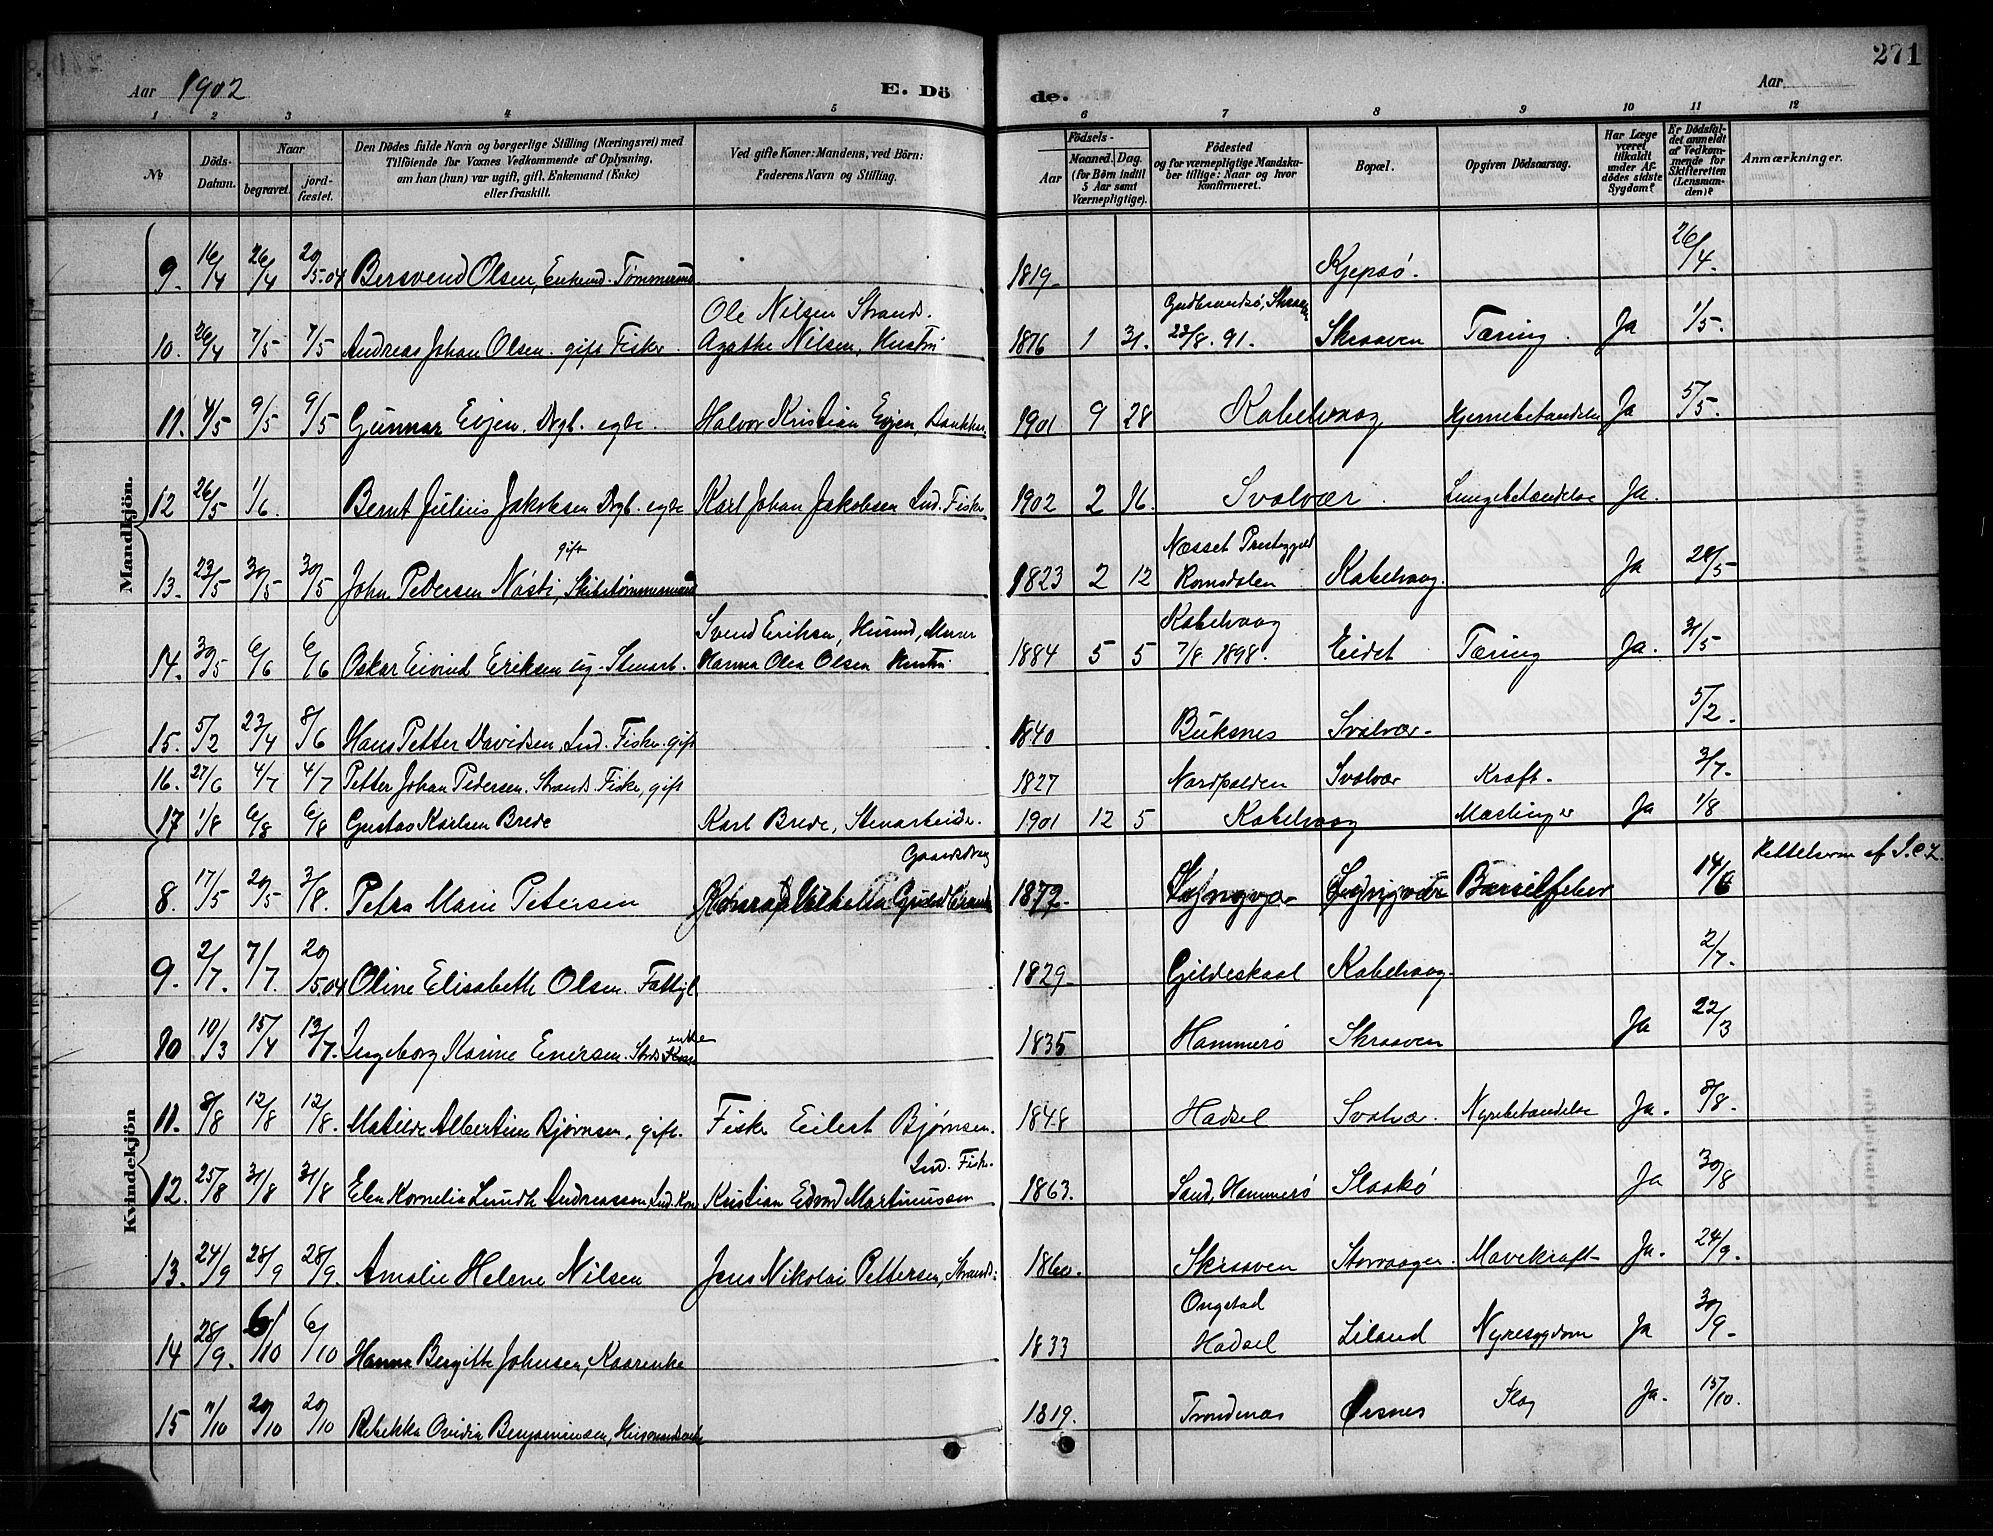 271
Aar 1902 E. Dö de. Aar
1 2 3 4 5 6 7 8 9 10 11 12
№ Döds-Datum. Naar begravet. jord-fæstet. Den Dödes fulde Navn og borgerlige Stilling (Næringsvei) med Tilföiende for Voxnes Vedkommende af Oplysning, om han (hun) var ugift, gift, Enkemand (Enke) eller fraskilt. Ved gifte Koner: Mandens, ved Börn: Faderens Navn og Stilling. Födsels- Aar Maaned. Dag. (for Börn indtil 5 Aar samt Værnepligtige). Födested og for værnepligtige Mandskaber tillige: Naar og hvor konfirmeret. Bopæl. Opgiven Dödsaarsag. Har Læge været tilkaldt under Afdödes sidste Sygdom? Er Dödsfaldet anmeldt af Vedkommende for Skifteretten (Lensmanden)? Anmærkninger.
Mandkjön.
9. 16/4 26/4 20/5.04 Bersvend Olsen, Enkemd. Tømmermd. 1819 Kjepsø. 26/4.
10. 26/4 7/5 7/5 Andreas Johan Olsen. gift Fisker. Ole Nilsen Strands. Agathe Nilsen, Hustru 1876 1 31. Gudbrandsø, Skraaven 23/8. 91. Skraaven Tæring. Ja 1/5.
11. 4/5 9/5 9/5 Gunnar Evjen. Dbgt. egte. Halvor Kristian Evjen, 1901 9 28 Kabelvaag Hjernebetændelse Ja 5/5.
12 26/5 1/6. Bernt Julius Jakobsen Dbgt. egte Karl Johan Jakobsen Ind. Fisker 1902 2 16. Svolvær. Lungebetændelse Ja.
13. 23/5 30/5 30/5 John Pedersen Nøsti, gift Skibstømmermand 1823 2 12 Næsset Prestegjeld Romsdalen Kabelvaag. Ja 28/5
14. 30/5 6/6 6/6 Oskar Eivind Eriksen ug. Stenarb. Svend Eriksen, Husmd, Murer Hanna Olea Olsen Hustru 1884 5 5 Kabelvaag 7/8 1898. Eidet Tæring Ja. 31/5
15. 5/2 23/4 8/6 Hans Petter Davidsen, Ind. Fisker. gift 1840 Buksnes Svolvær. 5/2.
16. 27/6 4/7 4/7 Petter Johan Pedersen. Strands. Fisker, gift 1827 Nordfolden Svolvær Kræft. 3/7.
17 1/8 6/8 6/8 Gustav Karlsen Brede Karl Brede, Stenarbeider. 1901 12 5 Kabelvaag Mæslinger Ja 1/8
Kvindekjön
8. 17/5 20/5 3/8. Petra Marie Petersen Gaardsdreng 1872. Barselfeber 14/6
9. 2/7. 7/7. 20/5.04 Oline Elisabeth Olsen. Fattigl. 1829 Gildeskaal Kabelvaag. 2/7.
10 19/3 15/4 13/7. Ingeborg Karine Enersen. Strds enke 1835 Hammerø Skraaven Ja 22/3
11. 8/8 12/8 12/8. Matilde Albertine Bjørnsen, gift. Fisker Eilert Bjørnsen. 1848 Hadsel Svolvær. Nyrebetændelse Ja. 8/8.
12. 25/8 31/8 31/8 Elen Kornelia Lundk Andreassen, Ind. Kone Ind. Fisker. Kristian Edvard Martinussen 1863. Sand, Hammerø Slaakø Ja 30/8
13. 24/9 28/9 28/9. Amalie Helene Nilsen Jens Nikolai Pettersen, Strands: 1860. Skraaven Storvaagen. Mavekræft Ja. 24/9.
14 28/9. 6/10 6/10 Hanna Bergitte Johnsen, Kaarenke 1833 Ongstad Hadsel Liland Nyresygdom Ja 30/9.
15 11/10 20/10 20/10 Rebekka Ovidia Benjaminsen, Husmandsenke 1819. Trondenæs Ørsnes Slag Ja. 15/10.